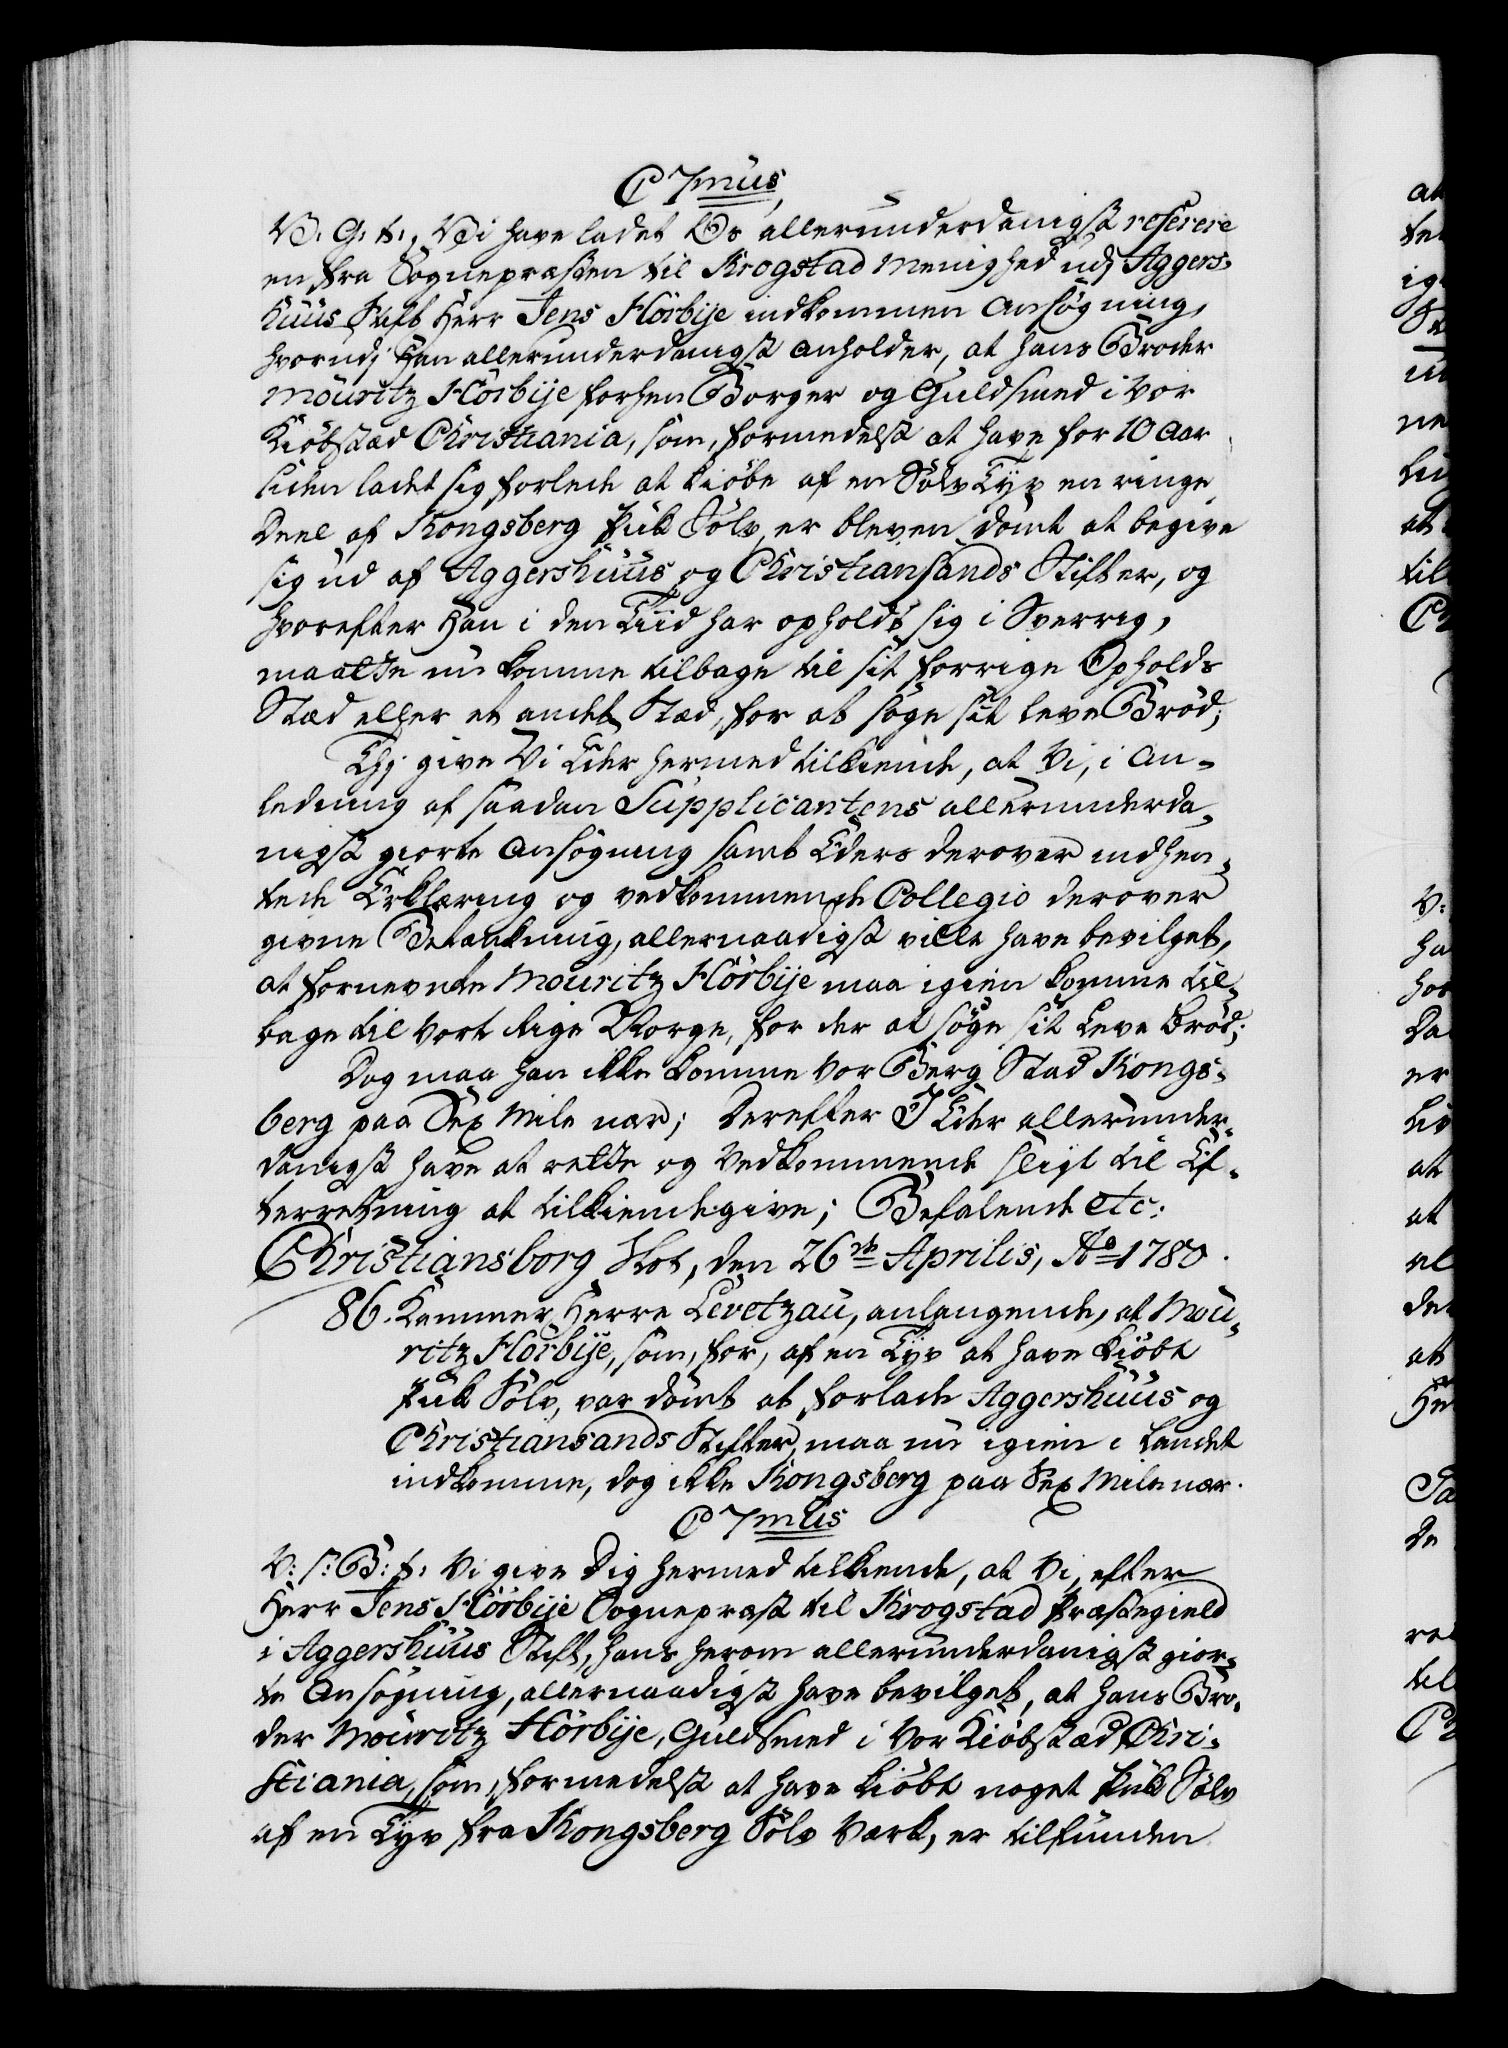 C 7mus,
V. G. t., Vi have ladet Os allerunderdanigst referere
en fra Sognepræsten til Krogstad Menighed udj Aggers-
huus Stift Herr Jens Hörbije indkommen Ansøgning,
hvorudj Han allerunderdanigst anholder, at hans Broder
Mouritz Hörbije forhen Borger og Guldsmed i Vor
Kiöbstæd Christiania, som, formedelst at have for 10 Aar
siden ladet sig forlede at kiöbe af en Sölv Tyv en ringe
Deel af Kongsberg Puk Sölv, er bleven dömt at begive
sig ud af Aggershuus og Christiansands Stifter, og
hvorefter Han i den Tiid har opholdt sig i Sverrig,
maatte nu komme tilbage til sit forrige Opholds
Stæd eller et andet Stæd, for at söge sit leve Bröd;
Thj give Vi Eder hermed tilkiende, at Vi, i An-
ledning af saadan Supplicantens allerunderda-
nigst giorte Ansögning samt Eders derover indhen-
tede Erklæring og vedkommende Collegio derover
givne Betænkning, allernaadigst ville have bevilget,
at fornevnte Mouritz Hörbije maa igien komme til-
bage til Vort Rige Norge, for der at söge sit Leve Bröd;
Dog maa han ikke komme Vor Berg Stad Kongs-
berg paa Sex Mile nær; Derefter I Eder allerunder-
danigst have at rette og Vedkommende sligt til Ef-
terretning at tilkiendegive; Befalende etc:
Christiansborg Slot, den 26de Aprilis, Ao 1780.
86. Kammer Herre Levetzau, anlangende, at Mou-
ritz Hörbije, som, for, af en Tyv at have kiöbt
Puk Sölv, var dömt at forlade Aggershuus og
Christiansands Stifter, maa nu igien i Landet
indkomme, dog ikke Kongsberg paa Sex Mile nær.
C 7mus
V: S: B: t: Vi give Dig hermed tilkiende, at Vi, efter
Herr Jens Hörbije Sognepræst til Krogstad Præstegield
i Aggershuus Stift, hans herom allerunderdanigst gior-
te Ansögning, allernaadigst have bevilget, at hans Bro-
der Mouritz Hörbije, Guldsmed i Vor Kiöbstæd Chri-
stiania, som, formedelst at have kiöbt noget Puk Sölv
af en Tyv fra Kongsberg Sölv Værk, er tilfunden